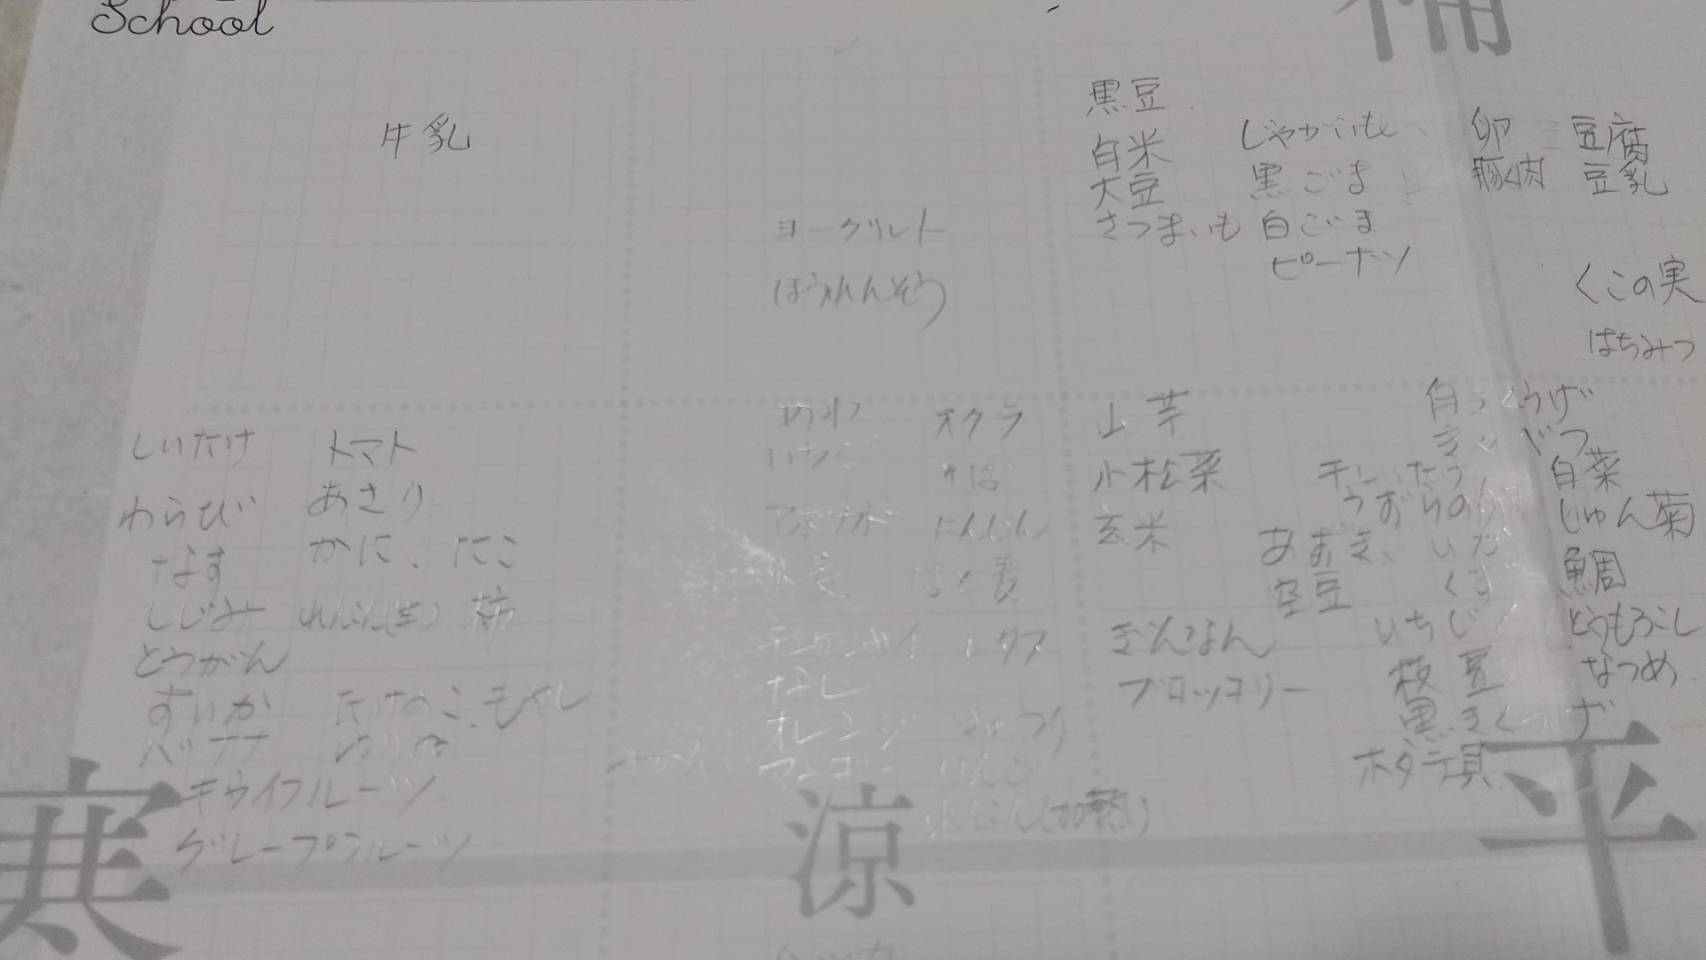 School
補
牛乳
ヨーグルト
ほうれんそう
黒豆
白米
大豆
さつまいも
じゃがいも
黒ごま
白ごま
ピーナツ
卵
豚肉
豆腐
豆乳
くこの実
はちみつ
しいたけ
わらび
なす
しじみ
とうがん
すいか
バナナ
キウイフルーツ
グレープフルーツ
トマト
あさり
かに、たこ
れんこん(生) 柿
たけのこ、もやし
ゆりね
あわ
いちご
アボカド
チンゲンサイ
なし
オレンジ
マンゴー
オクラ
そば
にんじん
はと麦
レタス
きゅうり
りんご
れんこん(加熱)
山芋
小松菜
玄米
ぎんなん
ブロッコリー
干しいたけ
うずらの
あずき、
空豆
いちじく
枝豆
黒きくらげ
ホタテ貝
白きくらげ
きゃべつ
白菜
しゅん菊
鯛
とうもろこし
なつめ
寒
涼
平